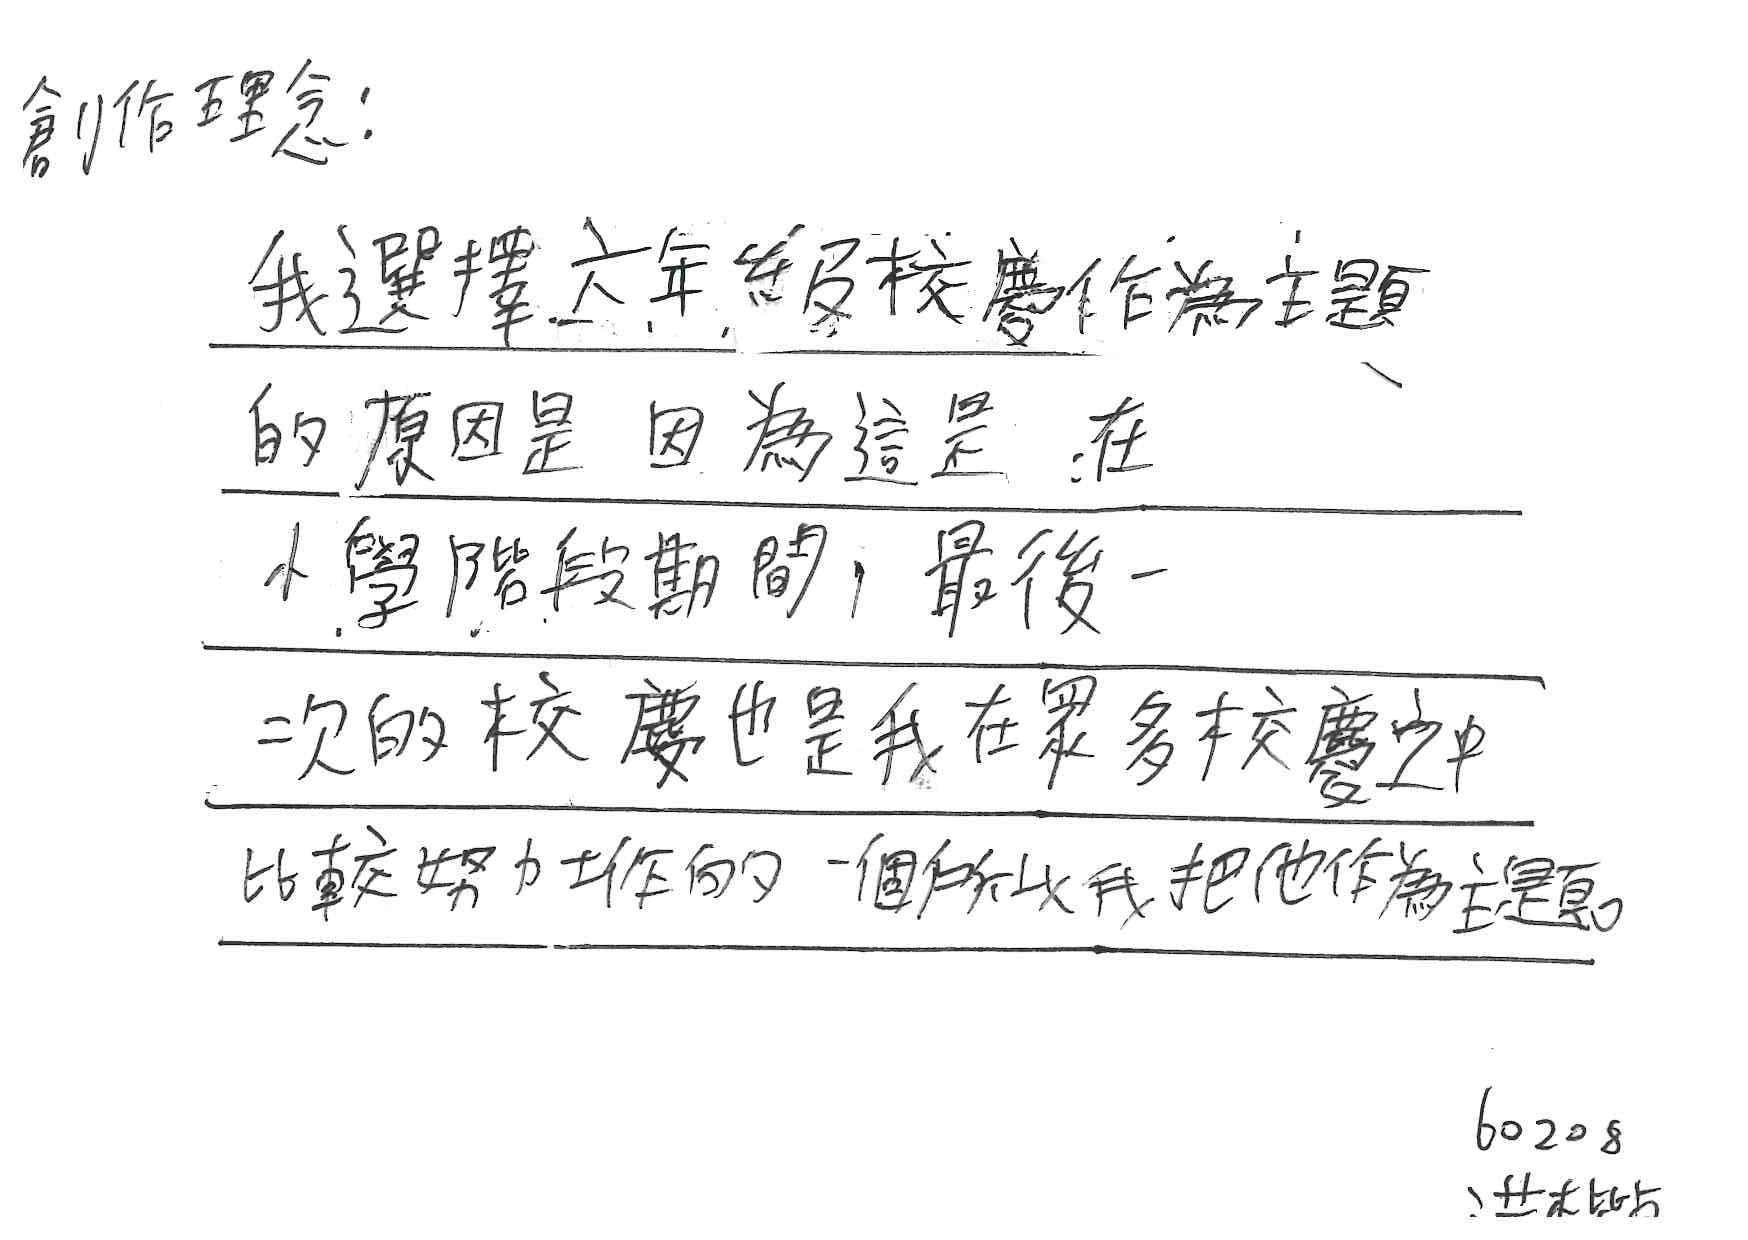 創作理念：
我選擇六年級校慶作為主題
的原因是因為這是在
小學階段期間，最後一
次的校慶也是我在眾多校慶之中
比較努力工作的一個所以我把他作為主題。
60208
洪